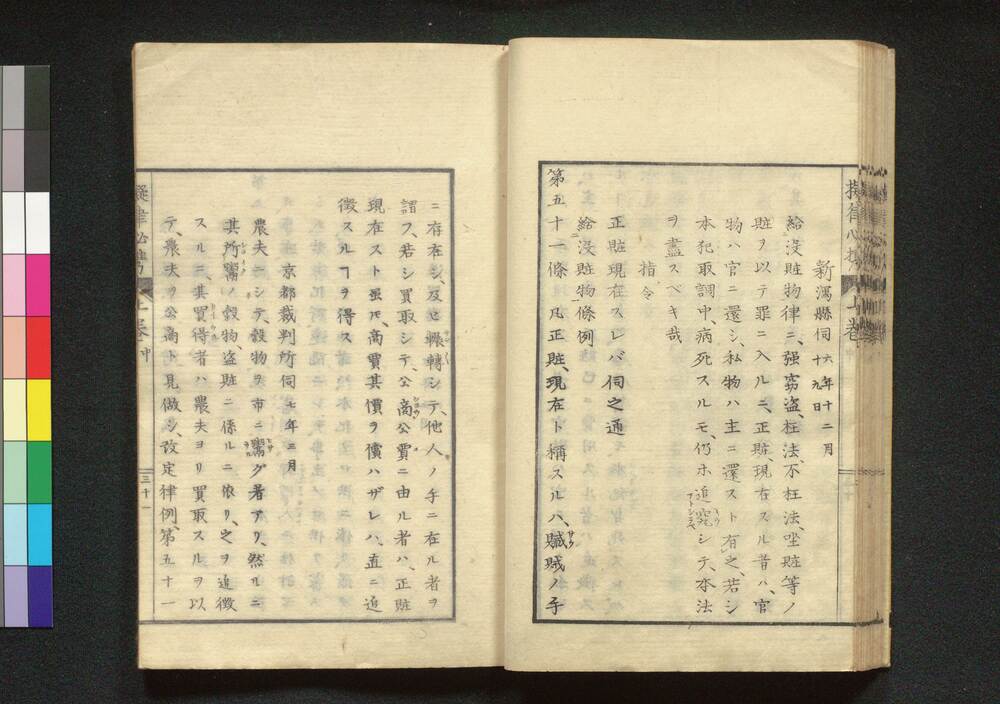 新潟縣伺 六年十二月十九日
給没賍物律ニ、強窃盗、枉法、不枉法、坐賍等ノ
賍ヲ以テ罪ニ入ルニ、正賍、現在スル者ハ、官
物ハ官ニ還シ、私物ハ主ニ還スト有之、若シ
本犯取調中、病死スルモ、仍ホ追究シテ、本法
ヲ盡スベキ哉
指令
正賍現在スレバ伺之通
給没賍物條例
第五十一條凡正賍、現在ト稱スルハ、賊ノ手
ニ存在シ、及ヒ輾轉シテ、他人ノ手ニ在ル者ヲ
謂フ、若シ買取シテ、公商公賈ニ由ル者ハ、正賍
現在スト虽モ、高買其價ヲ償ハザレハ、直ニ追
徴スルヿヲ得ス
京都裁判所伺 七年三月
農夫ニシテ、穀物ヲ市ニ鬻グ者アリ、然ルニ
其所鬻ノ穀物、盗賍ニ係ルニ依リ、之ヲ追徴
スルニ、其買得者ハ農夫ヨリ買取スルヲ以
テ、農夫ヲ公商ト見做シ、改定律例、第五十一
上卷 中
三十一